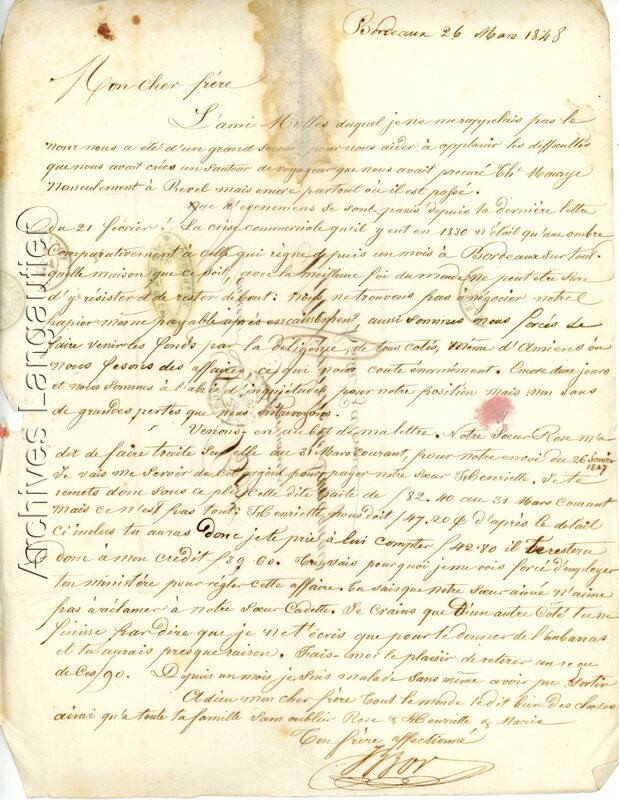 Bordeaux 26 Mars 1848
Mon cher frère
L'ami Molles duquel je ne me rappelais pas le
nom nous a été d'un grand secours pour nous aider à applanir les difficultés
que nous avait crées un sauteur de voyageur que nous avait procuré Thé Maurye
nonseulement à Revel mais encore partout où il est passé.
Que d'evenemens se sont passés depuis ta dernière lettre
du 21 février ! La crise commerciale qu'il y eut en 1830 n'était qu'une ombre
comparativement à celle qui règne depuis un mois à Bordeaux surtout.
quelle maison que ce soit, avec la meilleure foi du monde ne peut être sure
d'y résister et de rester debout : nous ne trouvons pas à négocier notre
papier même payable après encaissement aussi sommes nous forcés de
faire venir les fonds par la deligence, de tous cotés, même d'Amiens où
nous fesons des affaires, ce qui nous coute enormément. Encore deux jours
et nous sommes à l'abri d'inquiétudes pour notre position mais non sans
de grandes pertes que nous
Venons-en au but de ma lettre. Notre Soeur Rose m'a
dit de faire traite sur elle au 31 Mars courant, pour notre envoi du 26 Janvier
1847
Je vais me servir de cet argent pour payer notre Soeur Henriette. Je te
remets donc sous ce pli cette dite traite de f 82.40 au 31 Mars courant
mais ce n'est pas tout : Henriette nous doit f 47.20 d'après le détail
ci inclus tu auras donc je te prie à lui compter f 42.80 il te restera
donc à mon crédit f 39 60. Tu sais pourquoi je me vois forcé d'employer
ton ministère pour régler cette affaire. Tu sais que notre Soeur ainée n'aime
pas à réclamer à notre Soeur Cadette. Je crains que d'un autre Coté tu ne
finisse par dire que je ne t'écris que pour te donner de l'embarras
et tu aurais presque raison. Fais-moi le plaisir de retirer un reçu
de ces f 90. Depuis un mois je suis malade sans même avoir pu sortir
Adieu mon cher frère tout le monde te dit bien des choses
ainsi qu'à toute ta famille sans oublier Rose & Henriette & Marie
Ton frère affectionné
Archives Langautier